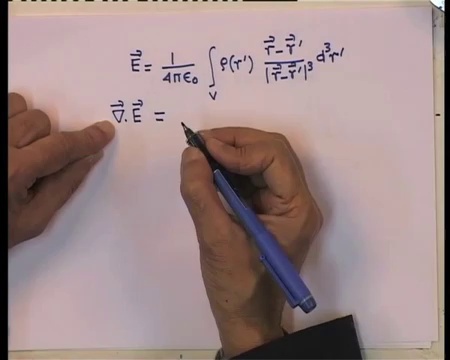 E⃗ = 1/4πϵ₀ ∫_V ρ(r') (r⃗ - r⃗')/|r⃗ - r⃗'|³ d³r'
∇⃗.E⃗ =